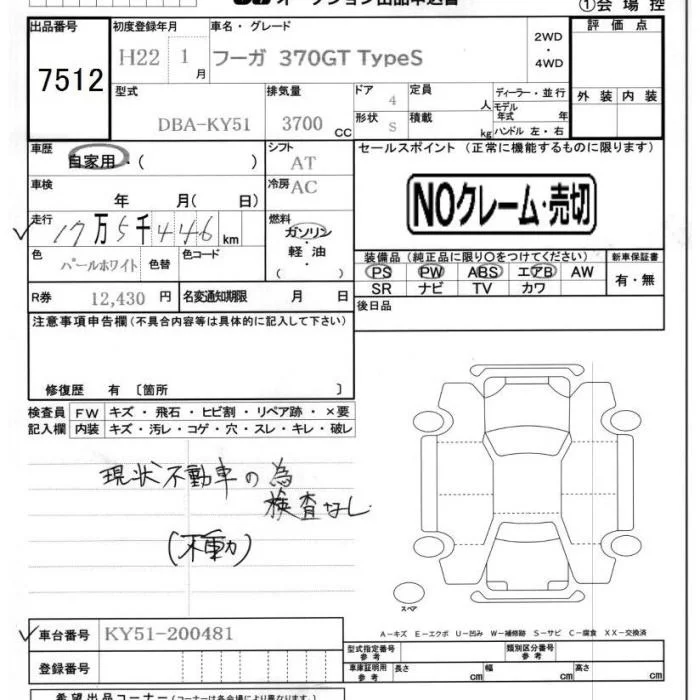 オークション出品申込書
①会 場 控
出品番号 7512
初度登録年月 H22 1月
車名・グレード フーガ 370GT TypeS
2WD・4WD
評 価 点
外 装 内 装
型式 DBA-KY51
排気量 3700 CC
ドア 4
形状 S
定員 人
積載 kg
ディーラー・並行
モデル年式 年
ハンドル 左・右
車歴 自家用・( )
シフト AT
セールスポイント (正常に機能するものに限ります)
車検 年 月( 日)
冷房 AC
NOクレーム・売切
走行 17万5千446 km
燃料 ガソリン・軽油・( )
色 パールホワイト 色替
色コード
装備品 (純正品に限り○をつけてください)
新車保証書
PS PW ABS エアB AW
有・無
SR ナビ TV カワ
R券 12,430 円
名変通知期限 月 日
後日品
注意事項申告欄(不具合内容等は具体的に記入して下さい)
修復歴 有 〔箇所 〕
検査員記入欄
FW キズ・飛石・ヒビ割・リペア跡・×要
内装 キズ・汚レ・コゲ・穴・スレ・キレ・破レ
現状不動車の為
検査なし
(不動)
スペア
A-キズ E-エクボ U-凹み W-補修跡 S-サビ C-腐食 XX-交換済
車台番号 KY51-200481
登録番号
型式指定番号参考
類別区分番号参考
車庫証明用参考 長さ cm 幅 cm 高さ cm
希望出品コーナー(コーナーは各会場により異なります。)